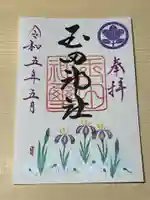 奉拝
玉田神社
令和五年五月